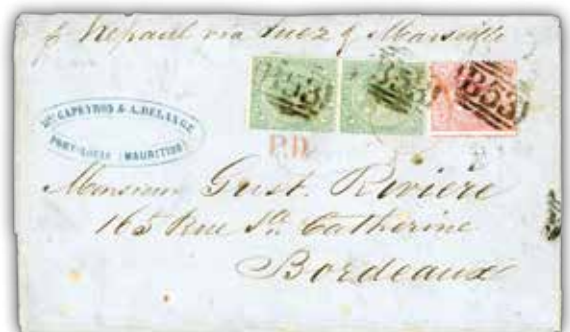 p Nepaul via Suez & Marseille
Mce CAPEYRON & A. DELANGE
PORT-LOUIS (MAURITIUS)
B53
B53
B53
P.D.
Monsieur Gust. Rivière
165 Rue Ste Catherine
Bordeaux